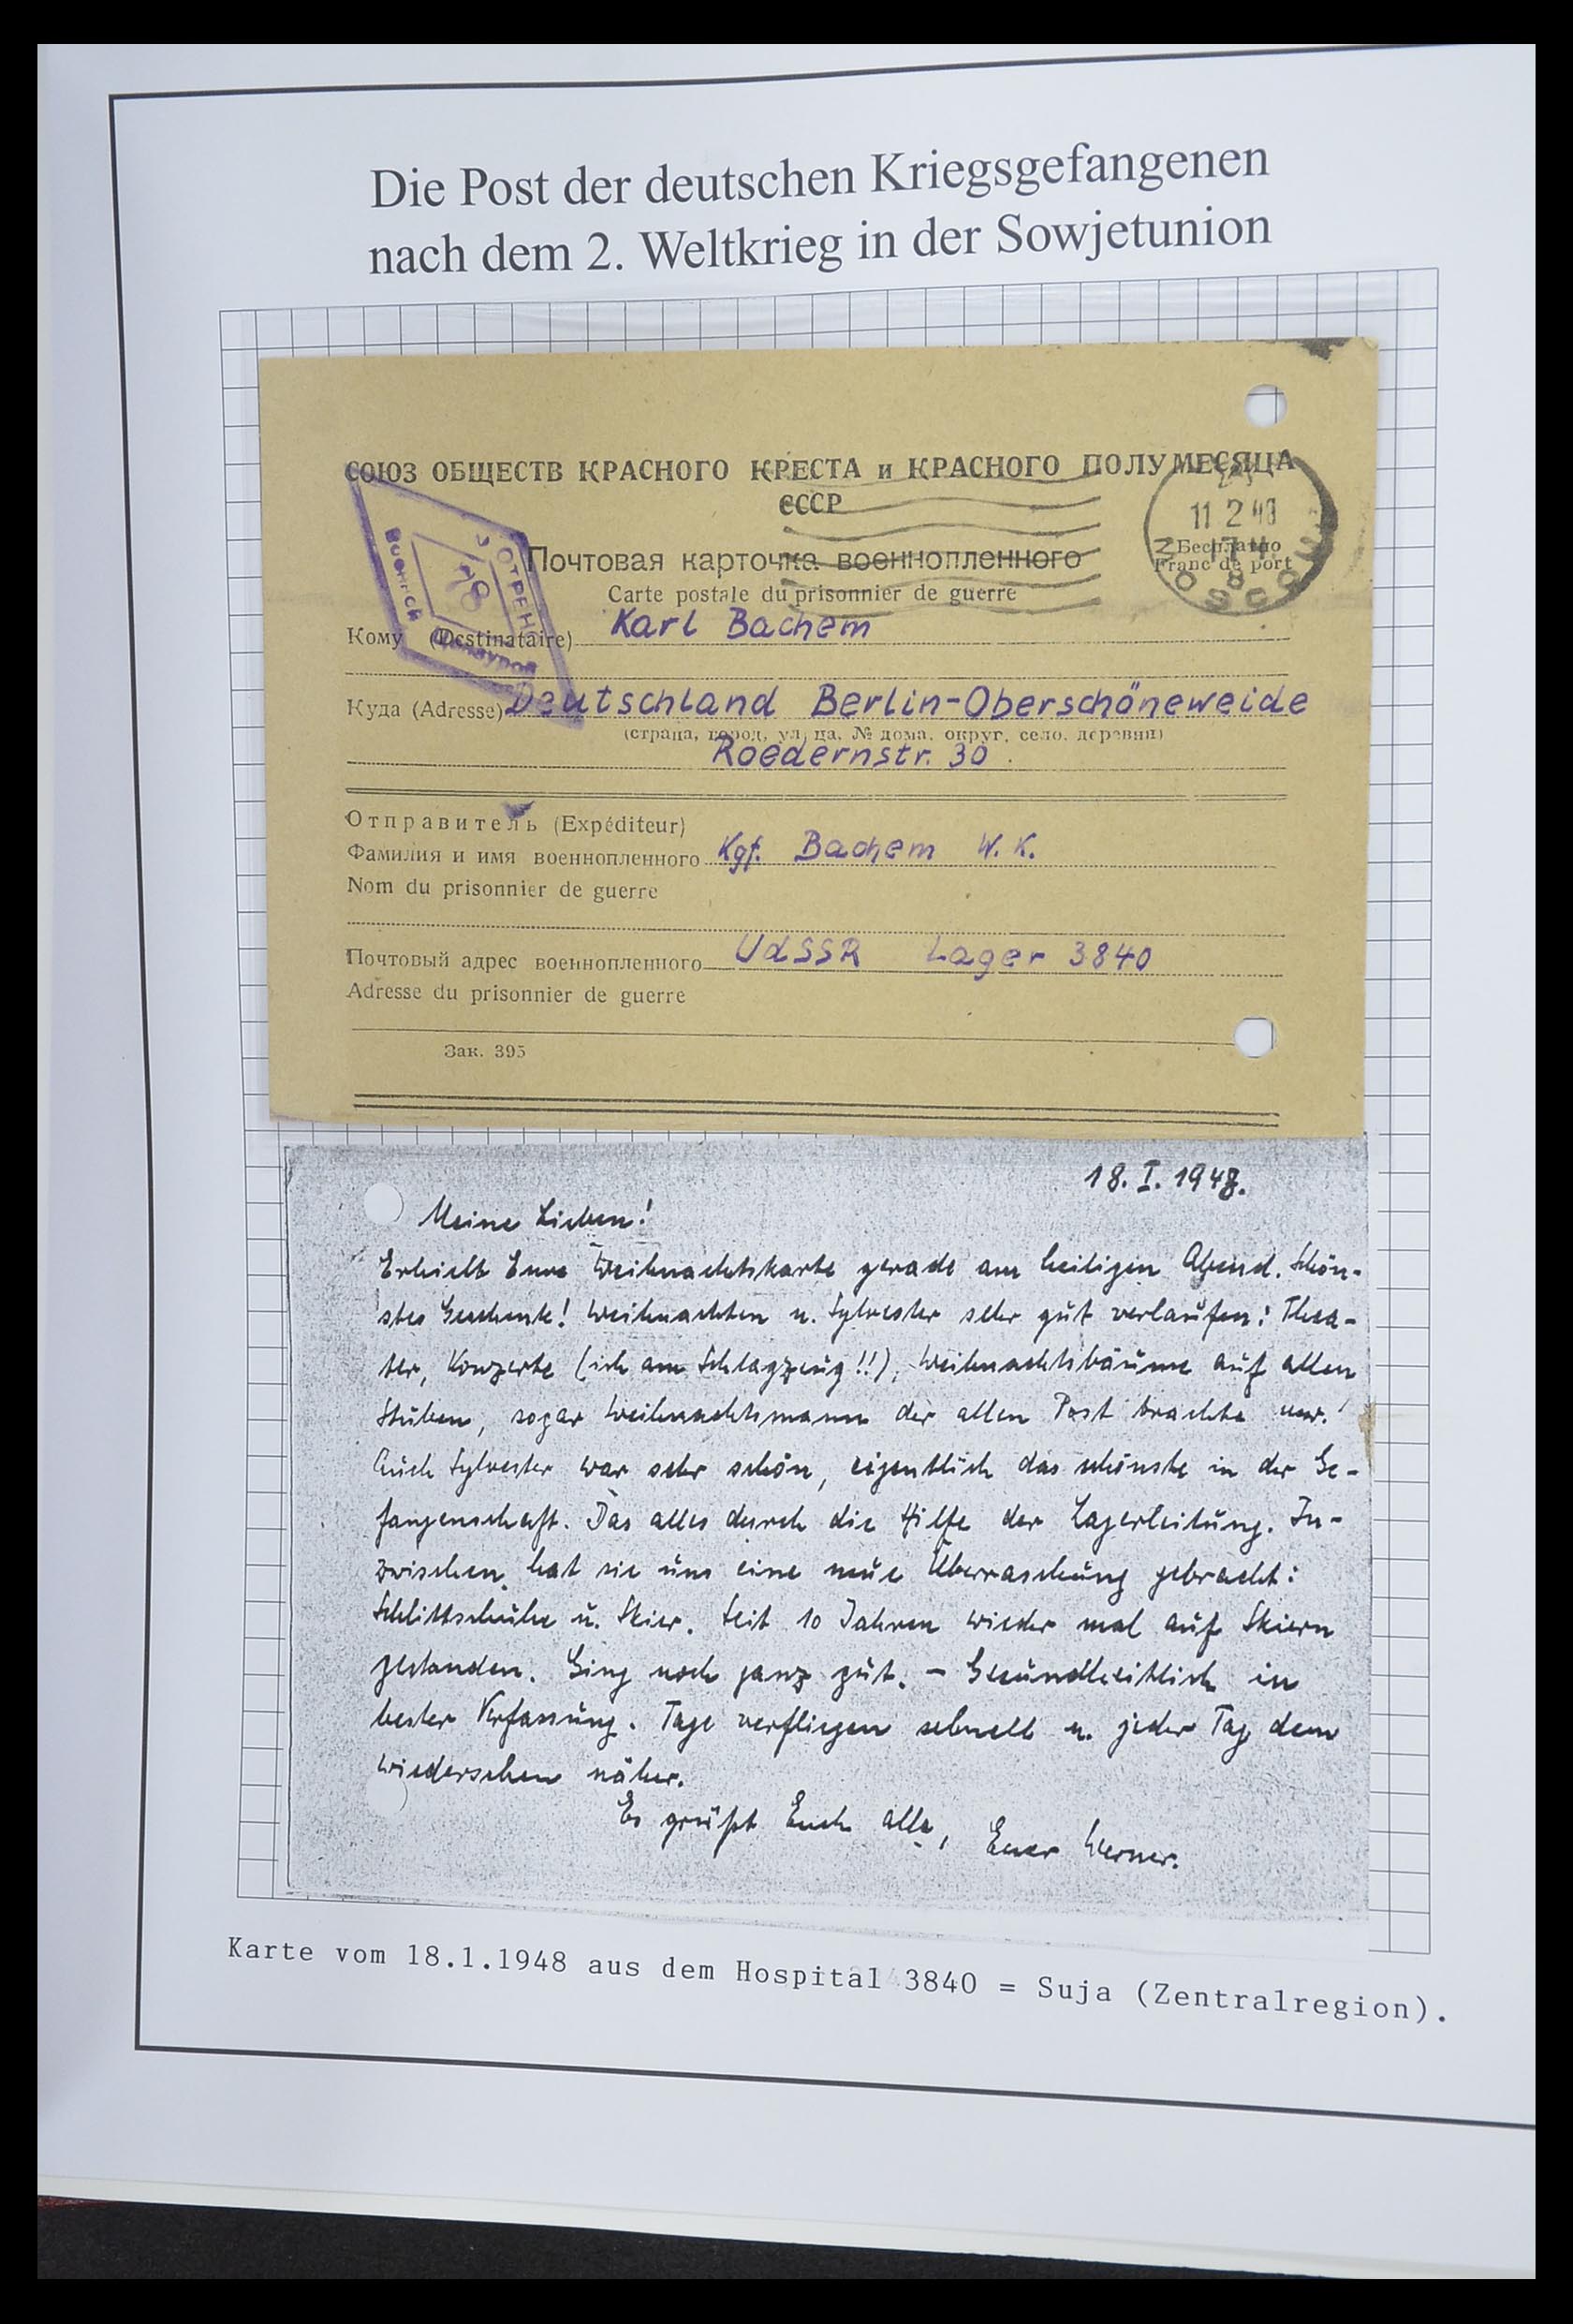 Die Post der deutschen Kriegsgefangenen
nach dem 2. Weltkrieg in der Sowjetunion
СОЮЗ ОБЩЕСТВ КРАСНОГО КРЕСТА и КРАСНОГО ПОЛУМЕСЯЦА
СССР
11 2 48
Почтовая карточка военнопленного
Бесплатно
Franc de port
Carte postale du prisonnier de guerre
MOSCOU
Кому (Destinataire) Karl Bachem
Куда (Adresse) Deutschland Berlin-Oberschöneweide
(страна, город, улица, № дома, округ, село, деревня)
Roedernstr. 30.
Отправитель (Expéditeur)
Фамилия и имя военнопленного Kgf. Bachem W. K.
Nom du prisonnier de guerre
Почтовый адрес военнопленного UdSSR Lager 3840
Adresse du prisonnier de guerre
Зак. 395
18. I. 1948.
Meine Lieben!
Erhielt Eure Weihnachtskarte gerade am heiligen Abend. Schön-
stes Geschenk! Weihnachten u. Sylvester sehr gut verlaufen: Thea-
ter, Konzerte (ich am Schlagzeug!!), Weihnachtsbäume auf allen
Stuben, sogar Weihnachtsmann der allen Post brachte usw.!
Auch Sylvester war sehr schön, eigentlich das schönste in der Ge-
fangenschaft. Das alles durch die Hilfe der Lagerleitung. In-
zwischen hat sie uns eine neue Überraschung gebracht:
Schlittschuhe u. Skier. Seit 10 Jahren wieder mal auf Skiern
gestanden. Ging noch ganz gut. – Gesundheitlich in
bester Verfassung. Tage verfliegen schnell u. jeder Tag dem
Wiedersehen näher.
Es grüßt Euch alle, Euer Werner.
Karte vom 18.1.1948 aus dem Hospital 3840 = Suja (Zentralregion).